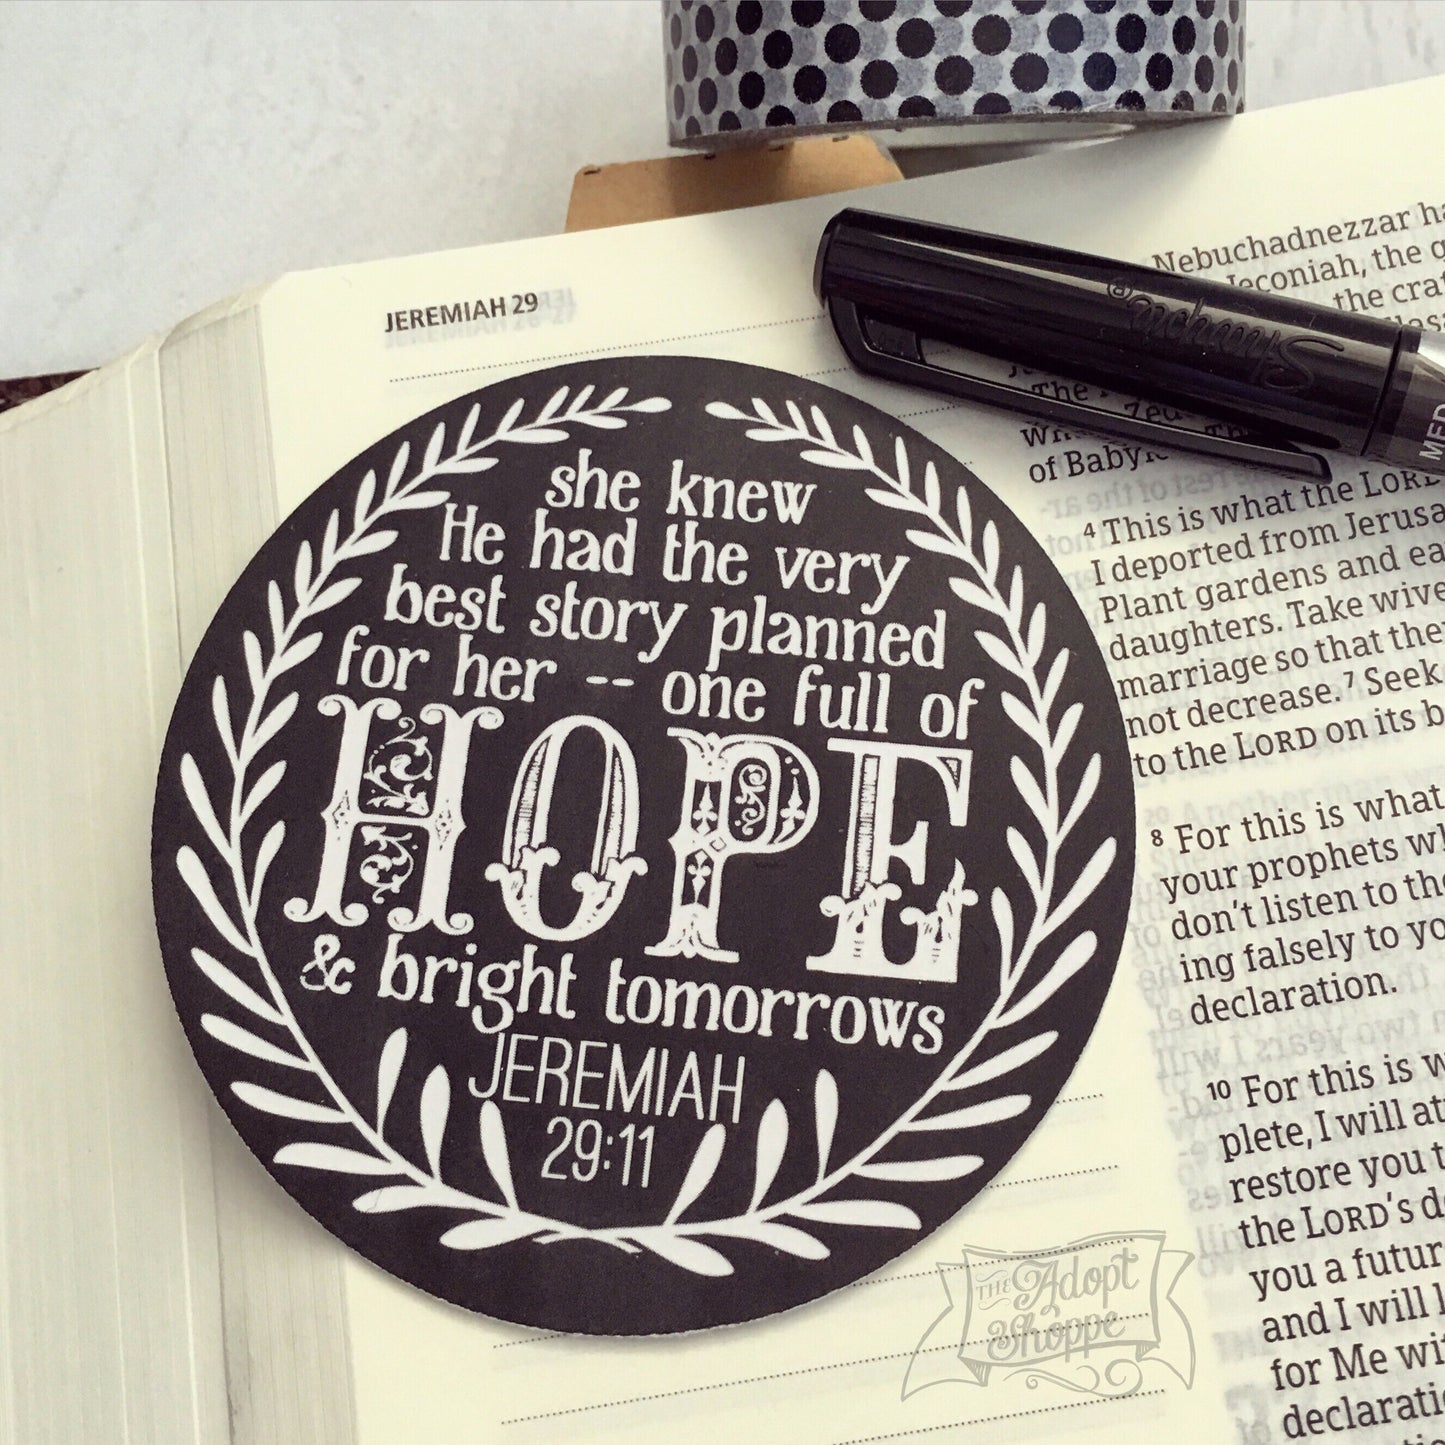 JEREMIAH 29
she knew
He had the very
best story planned
for her -- one full of
HOPE
& bright tomorrows
JEREMIAH
29:11
Sharpie®
MED
Nebuchadnezzar
Jeconiah, the
the
The
of
4 This is what the LORD
I deported from
Plant gardens and
daughters. Take
marriage so that
not decrease. 7 Seek
to the LORD on its
8 For this is what
your prophets
don't listen to
ing falsely to
declaration.
10 For this is
plete, I will
restore you
the LORD's
you a
and I will
for Me
The Adopt
Shoppe